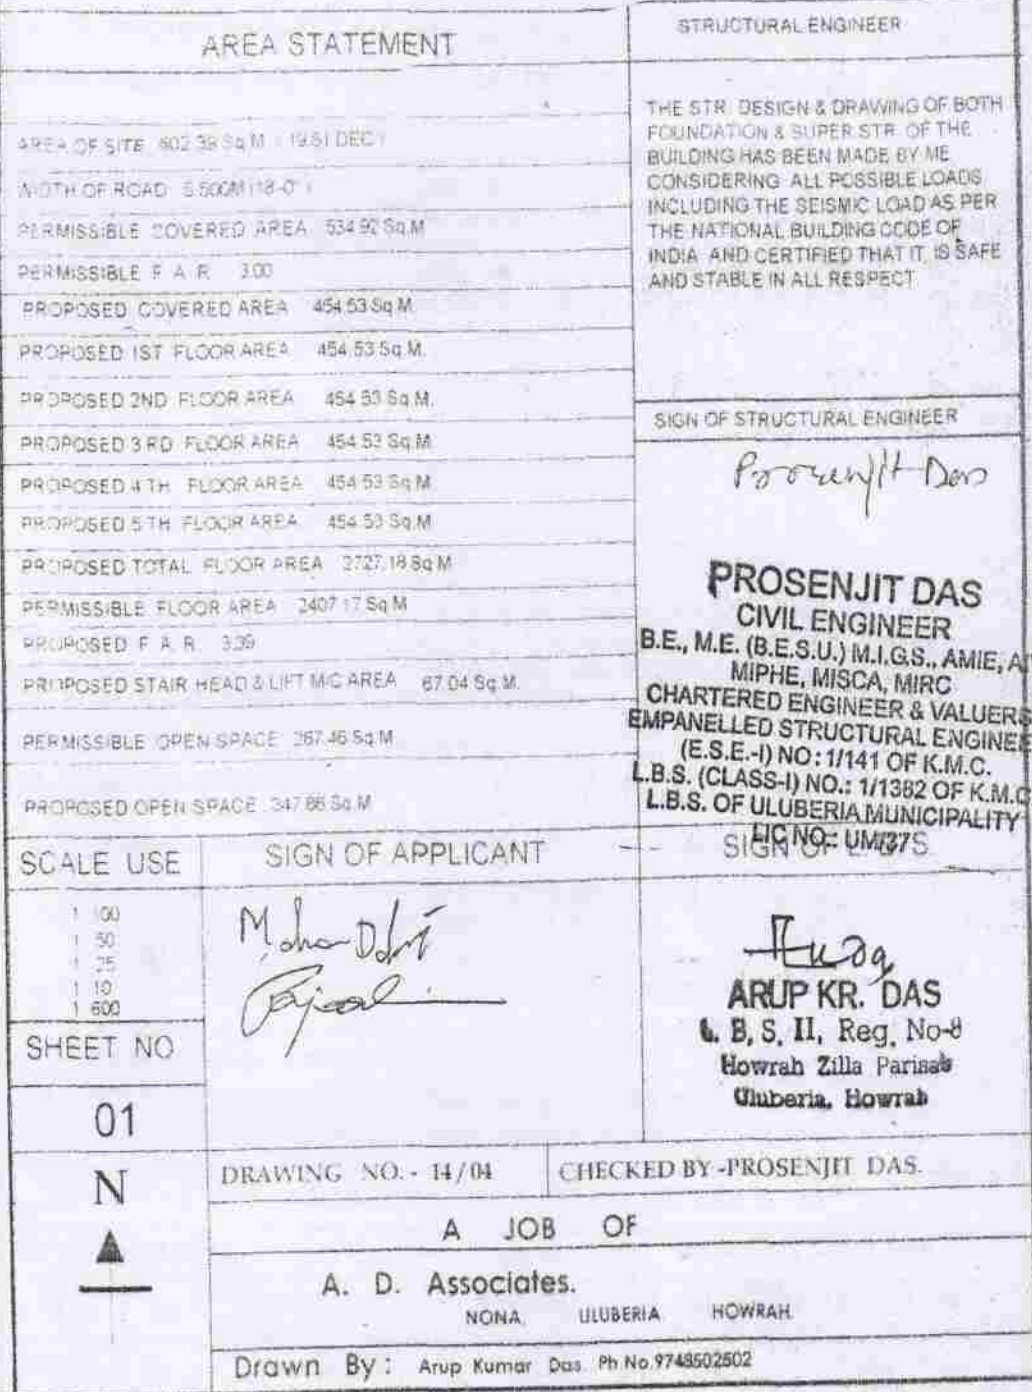 AREA STATEMENT
AREA OF SITE 802.39 Sq.M (19.81 DEC)
WIDTH OF ROAD 5.500M (18'-0")
PERMISSIBLE COVERED AREA 534.92 Sq.M
PERMISSIBLE F A R 3.00
PROPOSED COVERED AREA 454.53 Sq.M.
PROPOSED 1ST FLOOR AREA 454.53 Sq.M.
PROPOSED 2ND FLOOR AREA 454.53 Sq.M.
PROPOSED 3 RD FLOOR AREA 454.53 Sq.M.
PROPOSED 4 TH FLOOR AREA 454.53 Sq.M
PROPOSED 5 TH FLOOR AREA 454.53 Sq.M
PROPOSED TOTAL FLOOR AREA 2727.18 Sq.M
PERMISSIBLE FLOOR AREA 2407.17 Sq.M
PROPOSED F A R 3.39
PROPOSED STAIR HEAD & LIFT M/C AREA 67.04 Sq.M.
PERMISSIBLE OPEN SPACE 267.46 Sq.M
PROPOSED OPEN SPACE 347.86 Sq.M
STRUCTURAL ENGINEER
THE STR. DESIGN & DRAWING OF BOTH
FOUNDATION & SUPER STR. OF THE
BUILDING HAS BEEN MADE BY ME
CONSIDERING ALL POSSIBLE LOADS
INCLUDING THE SEISMIC LOAD AS PER
THE NATIONAL BUILDING CODE OF
INDIA AND CERTIFIED THAT IT IS SAFE
AND STABLE IN ALL RESPECT
SIGN OF STRUCTURAL ENGINEER
Prosenjit Das
PROSENJIT DAS
CIVIL ENGINEER
B.E., M.E. (B.E.S.U.) M.I.G.S., AMIE, A
MIPHE, MISCA, MIRC
CHARTERED ENGINEER & VALUER
EMPANELLED STRUCTURAL ENGINEE
(E.S.E.-I) NO: 1/141 OF K.M.C.
L.B.S. (CLASS-I) NO.: 1/1382 OF K.M.C
L.B.S. OF ULUBERIA MUNICIPALITY
LIC NO.: UM/37
SCALE USE
1 100
1 50
1 25
1 10
1 600
SIGN OF APPLICANT
SIGN OF L B S
ARUP KR. DAS
L. B. S. II, Reg. No-8
Howrah Zilla Parisad
Uluberia, Howrah
SHEET NO
01
N
DRAWING NO. - 14/04
CHECKED BY -PROSENJIT DAS.
A JOB OF
A. D. Associates.
NONA ULUBERIA HOWRAH.
Drawn By : Arup Kumar Das Ph No.9748502502